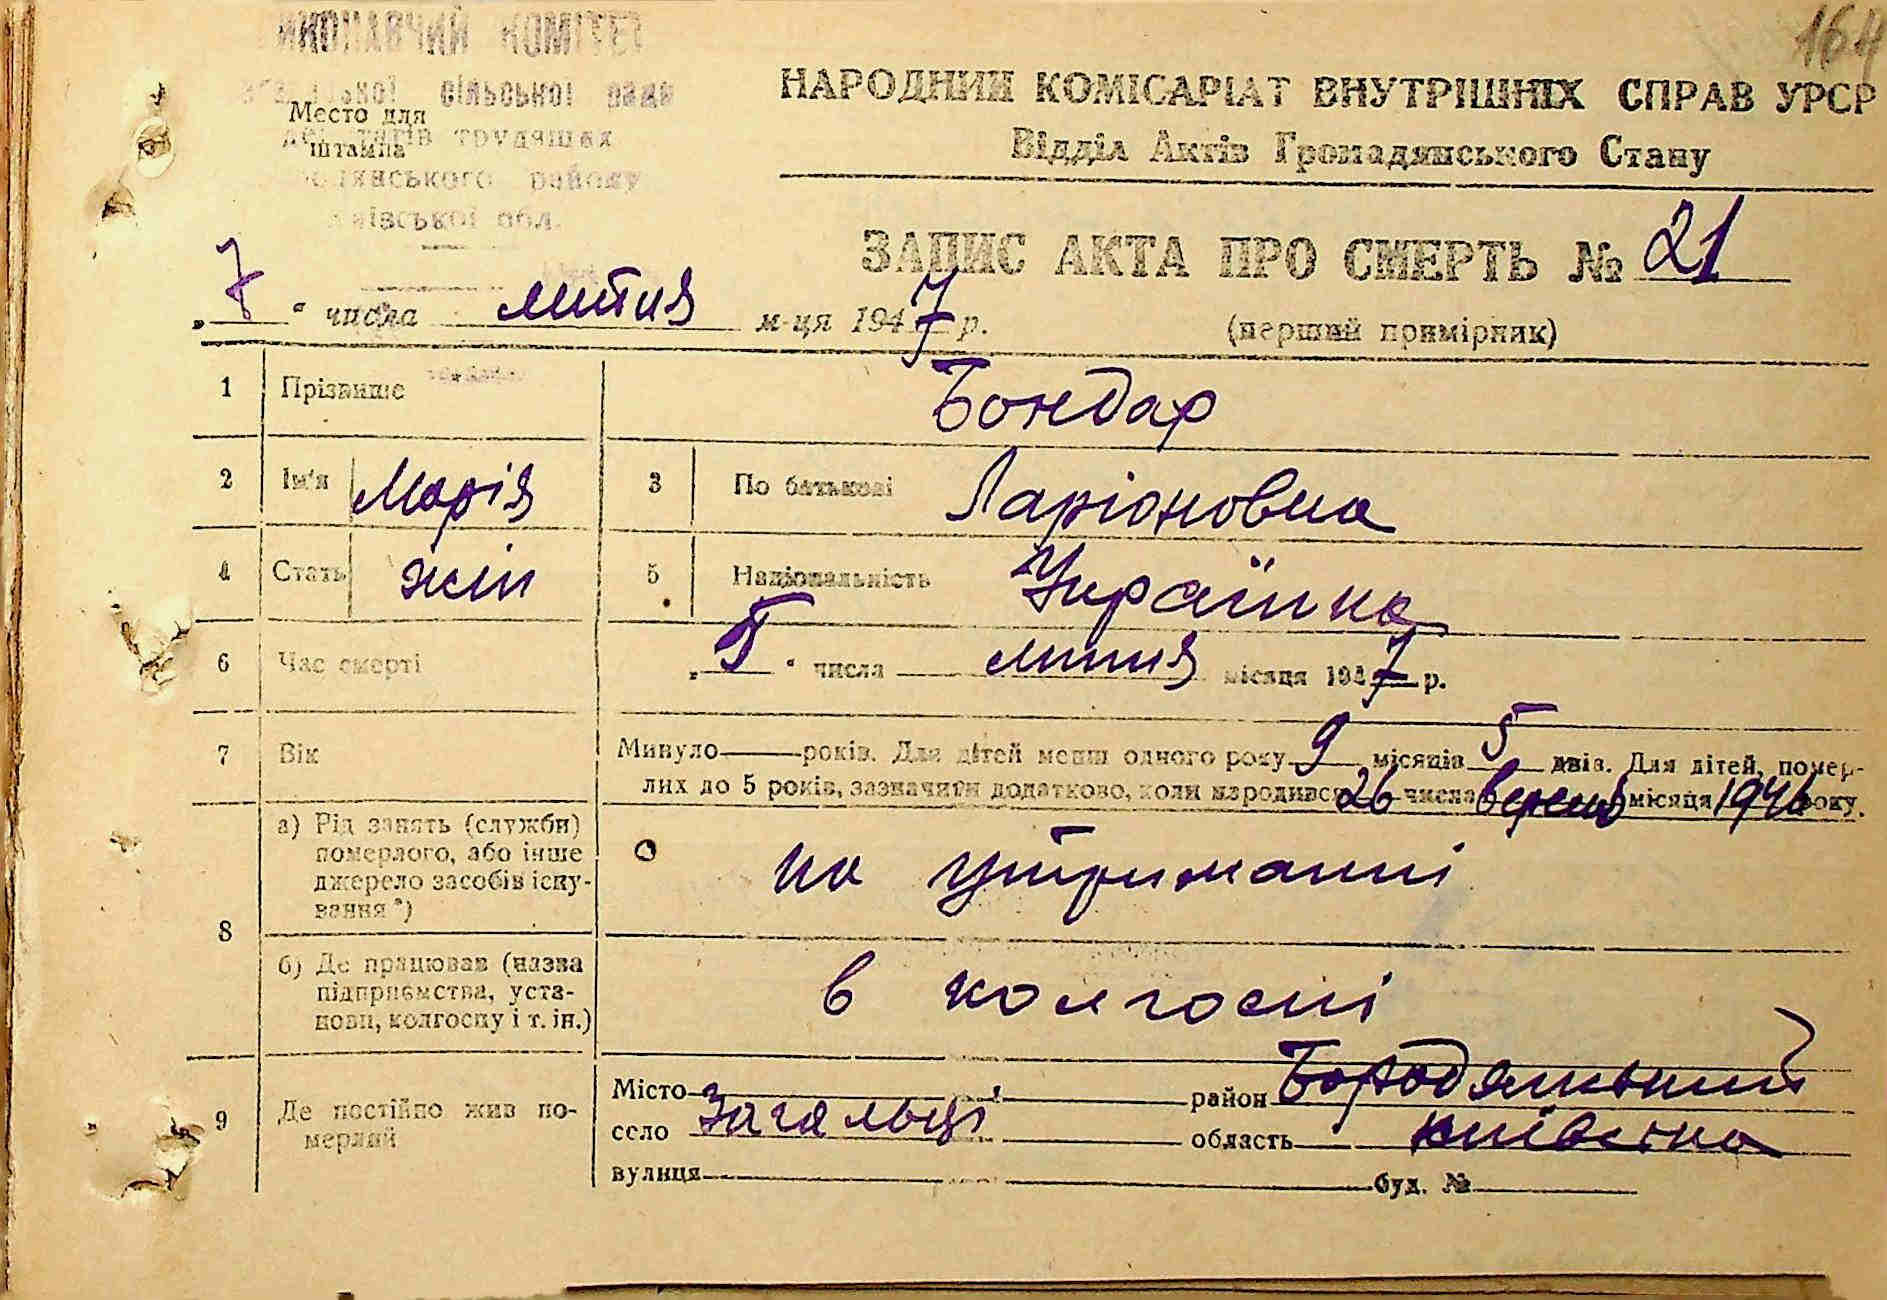 164
ВИКОНАВЧИЙ КОМІТЕТ
сільської ради
Место для
штампа
депутатів трудящих
Бородянського району
Київської обл.
НАРОДНИЙ КОМІСАРІАТ ВНУТРІШНІХ СПРАВ УРСР
Відділ Актів Громадянського Стану
ЗАПИС АКТА ПРО СМЕРТЬ № 21
„7“ числа липня м-ця 1947 р. (перший примірник)
1 Прізвище Бондар
2 Ім'я Марія 3 По батькові Ларіоновна
4 Стать жін 5 Національність Українка
6 Час смерті „5“ числа липня місяця 1947 р.
7 Вік Минуло — років. Для дітей менш одного року 9 місяців 5 днів. Для дітей, помер-
лих до 5 років, зазначити додатково, коли народився 26 числа вересня місяця 1946 року.
8 а) Рід занять (служби)
померлого, або інше
джерело засобів існу-
вання *)
на утриманні
б) Де працював (назва
підприємства, уста-
нови, колгоспу і т. ін.)
в колгоспі
9 Де постійно жив по-
мерлий
Місто район Бородянський
село Загальці область Київська
вулиця буд. №